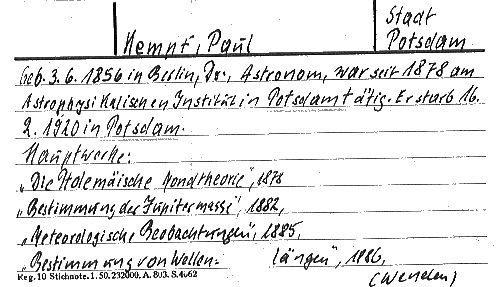 Stadt
Kempf, Paul Potsdam
Geb. 3.6.1856 in Berlin, Dr., Astronom, war seit 1878 am
Astrophysikalischen Institut in Potsdam tätig. Er starb 16.
2.1920 in Potsdam.
Hauptwerke:
„Die Ptolemäische Mondtheorie", 1878
„Bestimmung der Jupitermasse", 1882,
„Meteorologische Beobachtungen", 1885,
„Bestimmung von Wellen- längen", 1886,
Keg. 10 Stichnote. 1. 50. 232000. A. 803. S. 4062
(wenden)